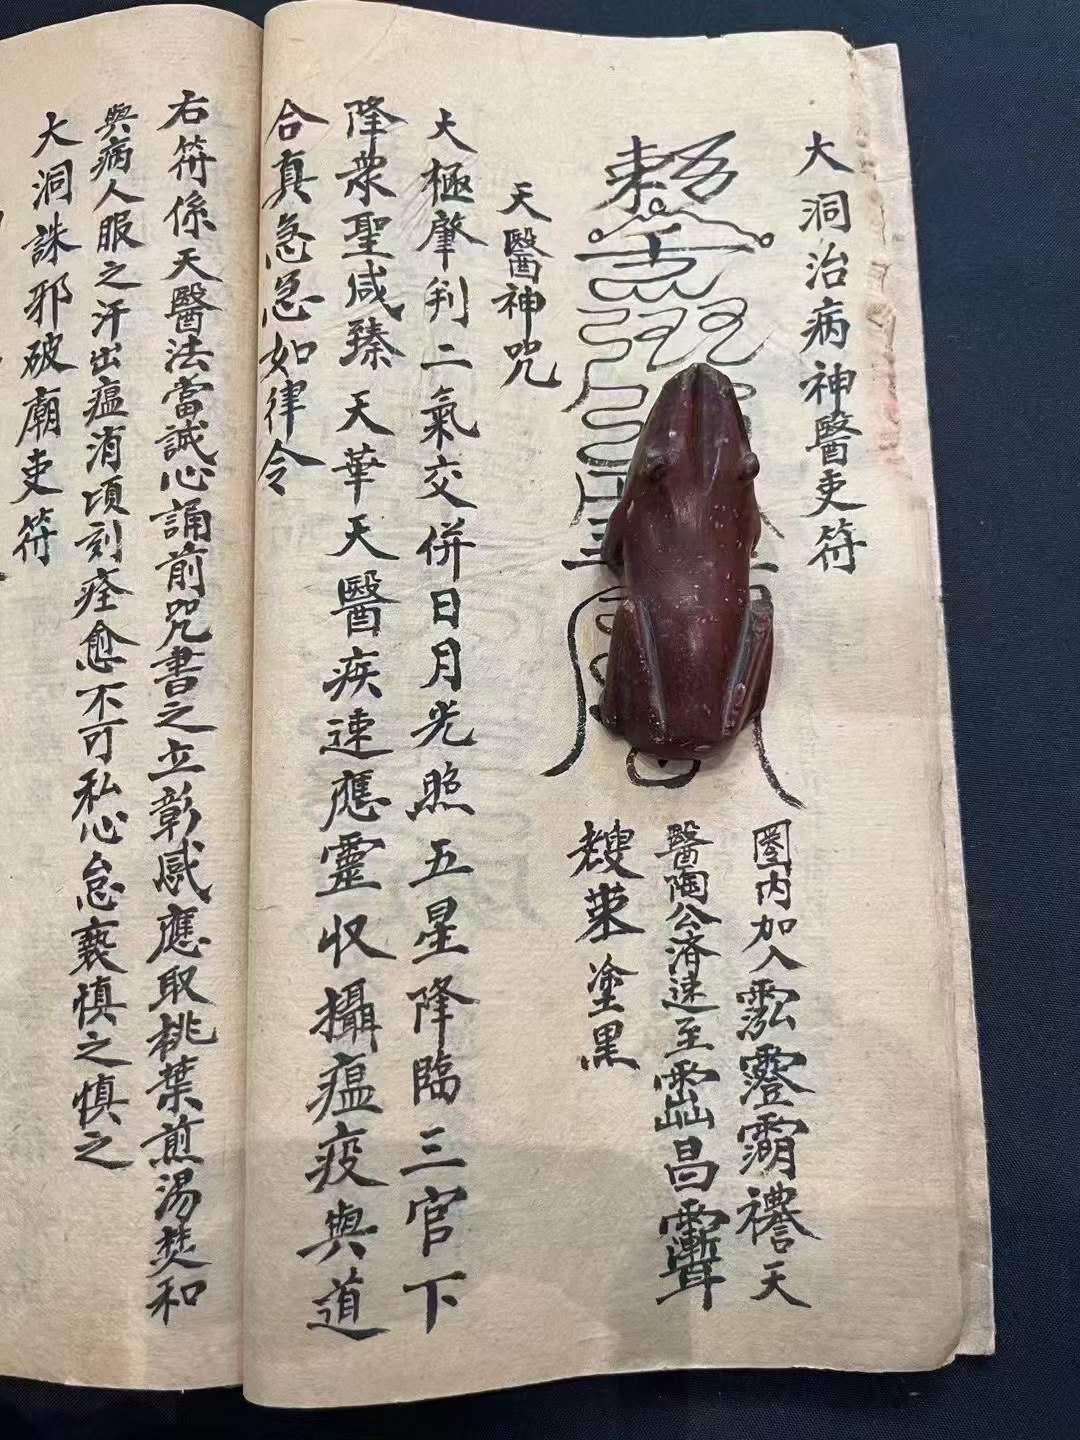 大洞治病神醫吏符
敕
圈内加入
天
醫陶公濟速至
昌
塗黑
天醫神咒
大極肇判二氣交併日月光照五星降臨三官下
降衆聖咸臻天華天醫疾速應靈收攝瘟疫與道
合真急急如律令
右符係天醫法當誠心誦前咒書之立彰感應取桃葉煎湯焚和
與病人服之汗出瘟消頃刻痊愈不可私心怠褻慎之慎之
大洞誅邪破廟吏符